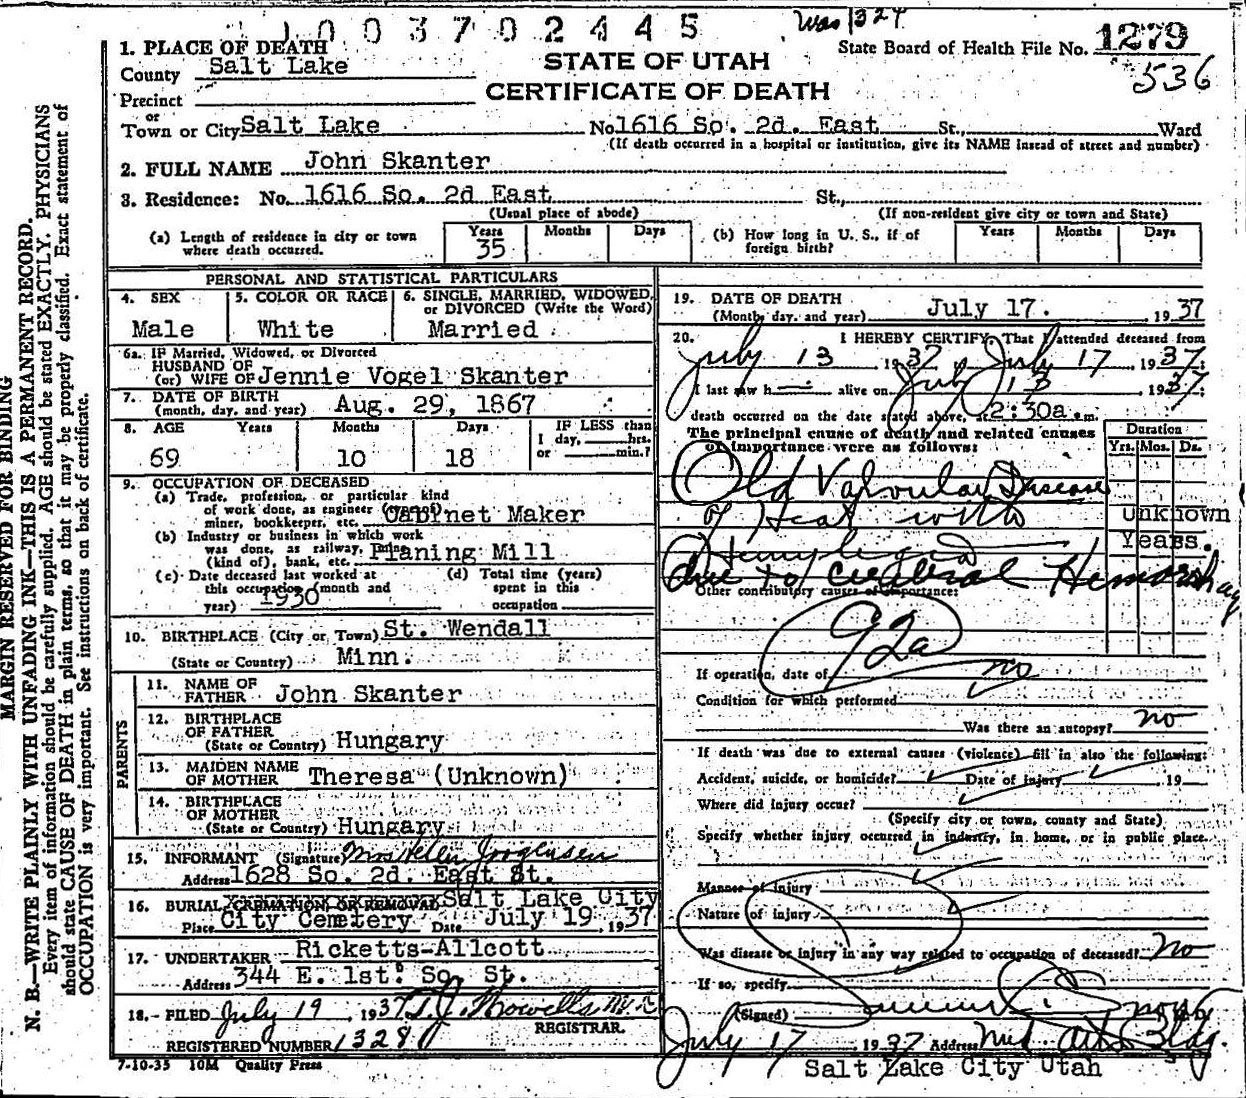 1003702445
Was 1324
State Board of Health File No. 1279
536
STATE OF UTAH
CERTIFICATE OF DEATH
1. PLACE OF DEATH
County Salt Lake
Precinct
or
Town or City Salt Lake No. 1616 So. 2d. East St., Ward
(If death occurred in a hospital or institution, give its NAME instead of street and number)
2. FULL NAME John Skanter
3. Residence: No. 1616 So. 2d East St.,
(Usual place of abode) (If non-resident give city or town and State)
(a) Length of residence in city or town where death occurred. Years 35 Months Days
(b) How long in U. S., if of foreign birth? Years Months Days
PERSONAL AND STATISTICAL PARTICULARS
4. SEX Male
5. COLOR OR RACE White
6. SINGLE, MARRIED, WIDOWED, or DIVORCED (Write the Word) Married
6a. IF Married, Widowed, or Divorced
HUSBAND OF
(or) WIFE OF Jennie Vogel Skanter
7. DATE OF BIRTH
(month, day, and year) Aug. 29, 1867
8. AGE Years Months Days IF LESS than
1 day, hrs.
or min.?
69 10 18
9. OCCUPATION OF DECEASED
(a) Trade, profession, or particular kind
of work done, as engineer
miner, bookkeeper, etc. Cabinet Maker
(b) Industry or business in which work
was done, as railway,
(kind of), bank, etc. Planing Mill
(c) Date deceased last worked at
this occupation (month and
year) 1930
(d) Total time (years)
spent in this
occupation
10. BIRTHPLACE (City or Town) St. Wendall
(State or Country) Minn.
PARENTS
11. NAME OF
FATHER John Skanter
12. BIRTHPLACE
OF FATHER
(State or Country) Hungary
13. MAIDEN NAME
OF MOTHER Theresa (Unknown)
14. BIRTHPLACE
OF MOTHER
(State or Country) Hungary
15. INFORMANT (Signature) Mrs Helen Jorgensen
Address 1628 So. 2d. East St.
16. BURIAL, CREMATION, OR REMOVAL Salt Lake City
Place City Cemetery Date July 19, 1937
17. UNDERTAKER Ricketts-Allcott
Address 344 E. 1st. So. St.
18. FILED July 19, 1937 T. J. Howells
REGISTRAR.
REGISTERED NUMBER 1328
7-10-35 10M Quality Press
19. DATE OF DEATH
(Month, day, and year) July 17. , 1937
20. I HEREBY CERTIFY, That I attended deceased from
July 13 1937, July 17 1937;
I last saw h alive on July 13 1937;
death occurred on the date stated above, at 2:30a. m.
The principal cause of death and related causes
of importance were as follows:
Duration
Yrs. Mos. Ds.
Old Valvular Disease
of Heat with
Unknown
Hemyplegia
Years.
due to Cerebral Hemorrhag
Other contributory causes of importance:
92a
If operation, date of no
Condition for which performed
Was there an autopsy? no
If death was due to external causes (violence) fill in also the following:
Accident, suicide, or homicide? Date of injury 19
Where did injury occur?
(Specify city or town, county and State)
Specify whether injury occurred in industry, in home, or in public place.
Manner of injury
Nature of injury
Was disease or injury in any way related to occupation of deceased? No
If so, specify
(Signed) Snow
July 17, 1937 Address Med Arts Bldg.
Salt Lake City Utah
MARGIN RESERVED FOR BINDING
N. B.—WRITE PLAINLY WITH UNFADING INK—THIS IS A PERMANENT RECORD.
Every item of information should be carefully supplied. AGE should be stated EXACTLY. PHYSICIANS
should state CAUSE OF DEATH in plain terms, so that it may be properly classified. Exact statement of
OCCUPATION is very important. See instructions on back of certificate.